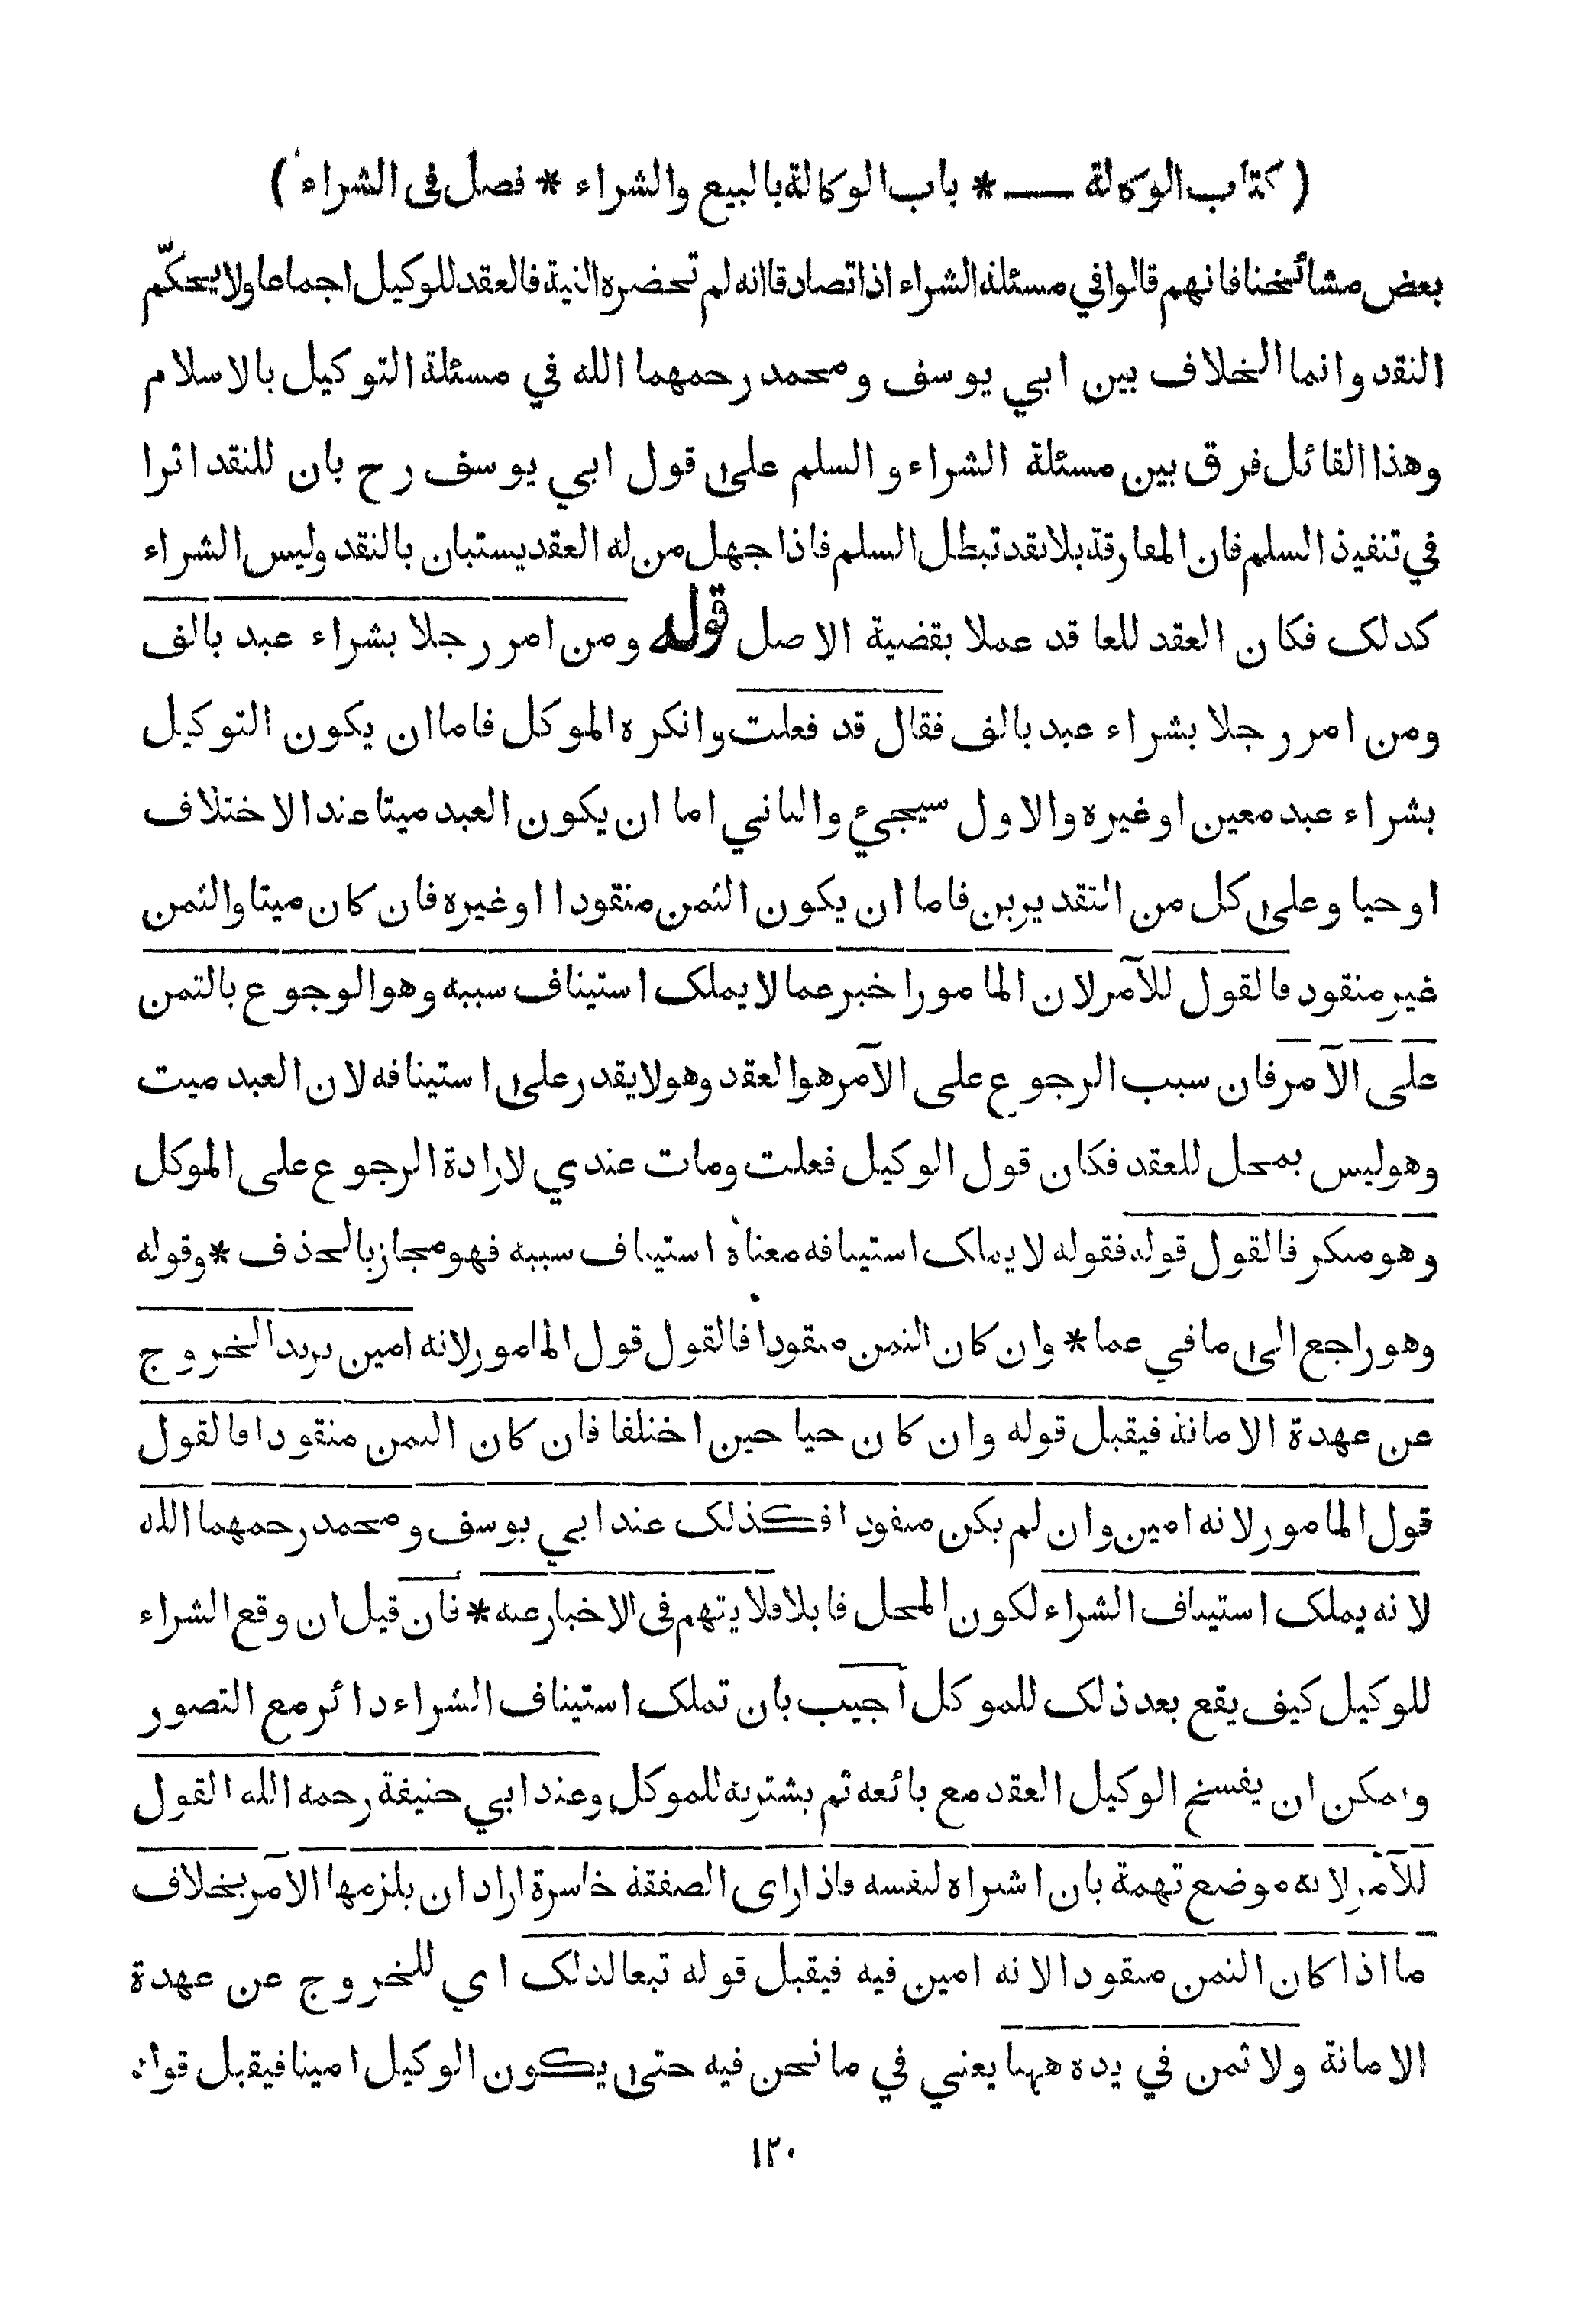 ( كتاب الوكالة — * باب الوكالة بالبيع والشراء * فصل فى الشراء )
بعض مشائخنا فانهم قالوا في مسئلة الشراء اذا تصادقا انه لم تحضره النية فالعقد للوكيل اجماعا ولا يحكّم
النقد وانما الخلاف بين ابي يوسف ومحمد رحمهما الله في مسئلة التوكيل بالاسلام
وهذا القائل فرق بين مسئلة الشراء و السلم على قول ابي يوسف رح بان للنقد اثرا
في تنفيذ السلم فان المفارقة بلا نقد تبطل السلم فاذا جهل من له العقد يستبان بالنقد وليس الشراء
كذلک فكان العقد للعاقد عملا بقضية الاصل قوله ومن امر رجلا بشراء عبد بالف
ومن امر رجلا بشراء عبد بالف فقال قد فعلت وانكره الموكل فاما ان يكون التوكيل
بشراء عبد معين او غيره والاول سيجيء والثاني اما ان يكون العبد ميتا عند الاختلاف
او حيا وعلى كل من التقديرين فاما ان يكون الثمن منقودا او غيره فان كان ميتا والثمن
غير منقود فالقول للآمر لان المامور اخبر عما لا يملک استيناف سببه وهو الوجوع بالثمن
على الآمر فان سبب الرجوع على الآمر هو العقد وهو لا يقدر على استينافه لان العبد ميت
وهو ليس بمحل للعقد فكان قول الوكيل فعلت ومات عندي لارادة الرجوع على الموكل
وهو منكر فالقول قوله فقوله لا يملک استينافه معناه استيناف سببه فهو مجاز بالحذف * وقوله
وهو راجع الى ما في عما * وان كان الثمن منقودا فالقول قول المامور لانه امين يريد الخروج
عن عهدة الامانة فيقبل قوله وان كان حيا حين اختلفا فان كان الثمن منقودا فالقول
قول المامور لانه امين وان لم يكن منقودا فكذلک عند ابي يوسف ومحمد رحمهما الله
لانه يملک استيناف الشراء لكون المحل قابلا فلا يتهم فى الاخبار عنه * فان قيل ان وقع الشراء
للوكيل كيف يقع بعد ذلک للموكل اجيب بان تملک استيناف الشراء دائر مع التصور
ويمكن ان يفسخ الوكيل العقد مع بائعه ثم يشتريه للموكل وعند ابي حنيفة رحمه الله القول
للآمر لانه موضع تهمة بان اشتراه لنفسه فاذا راى الصفقة خاسرة اراد ان يلزمها الآمر بخلاف
ما اذا كان الثمن منقودا لانه امين فيه فيقبل قوله تبعا لذلک اي للخروج عن عهدة
الامانة ولا ثمن في يده ههنا يعني في ما نحن فيه حتى يكون الوكيل امينا فيقبل قوله
١٢٠